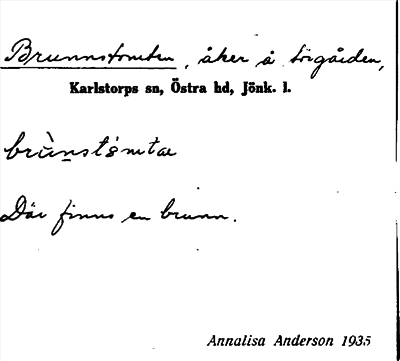 Brunnstomten, åker å Sörgården,
Karlstorps sn, Östra hd, Jönk. l.
brùnstⱥmtæ
Där finns en brunn.
Annalisa Anderson 1935